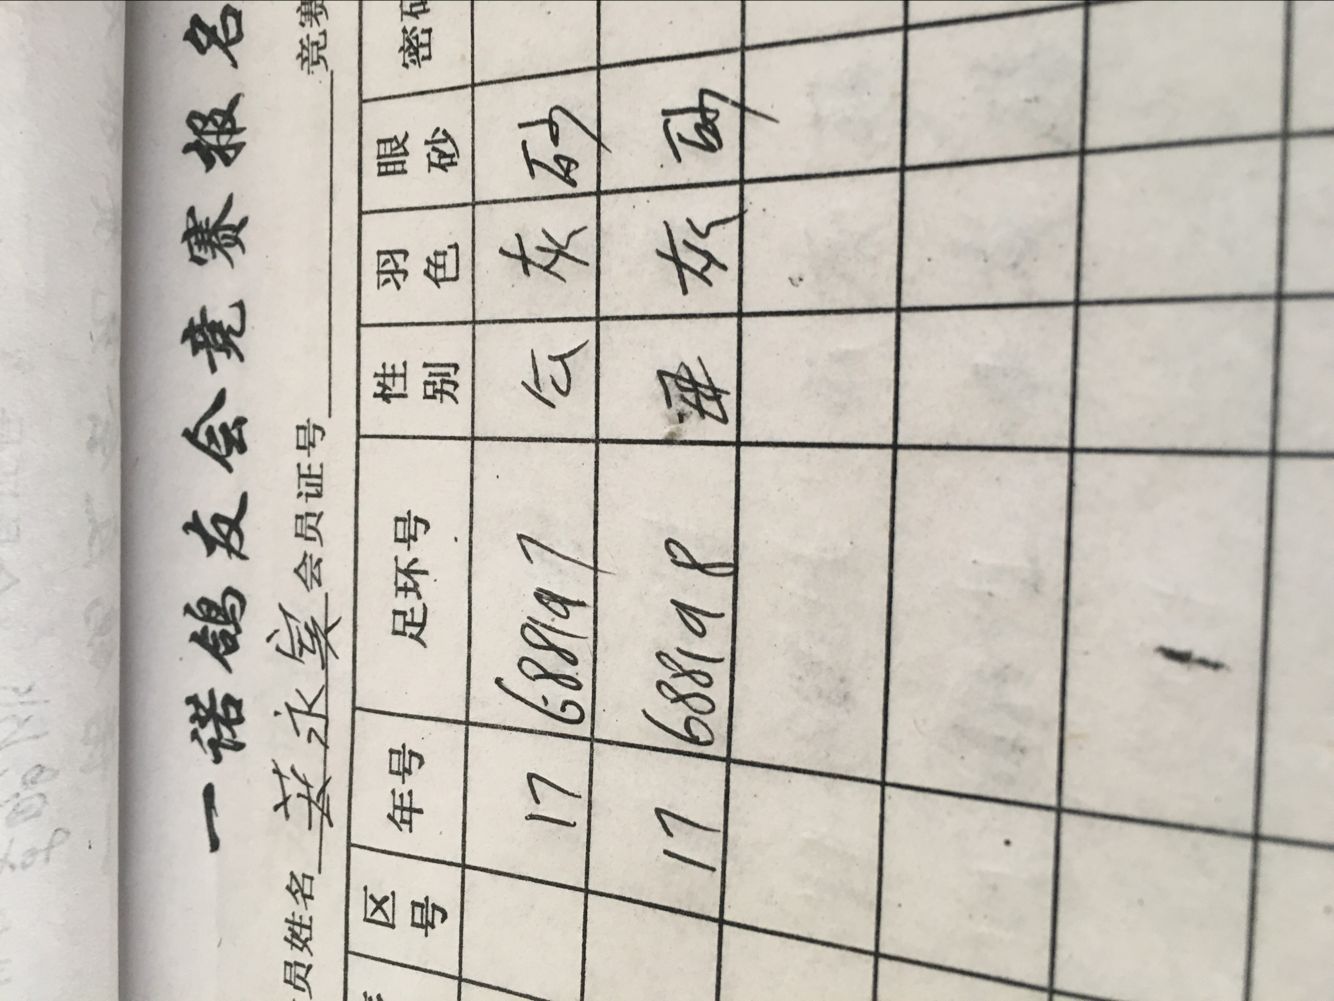 一诺鸽友会竞赛报名
员姓名 永 会员证号 竞赛
区号 年号 足环号 性别 羽色 眼砂 密码
17 688197 公 灰 砂
17 688198 母 灰 砂